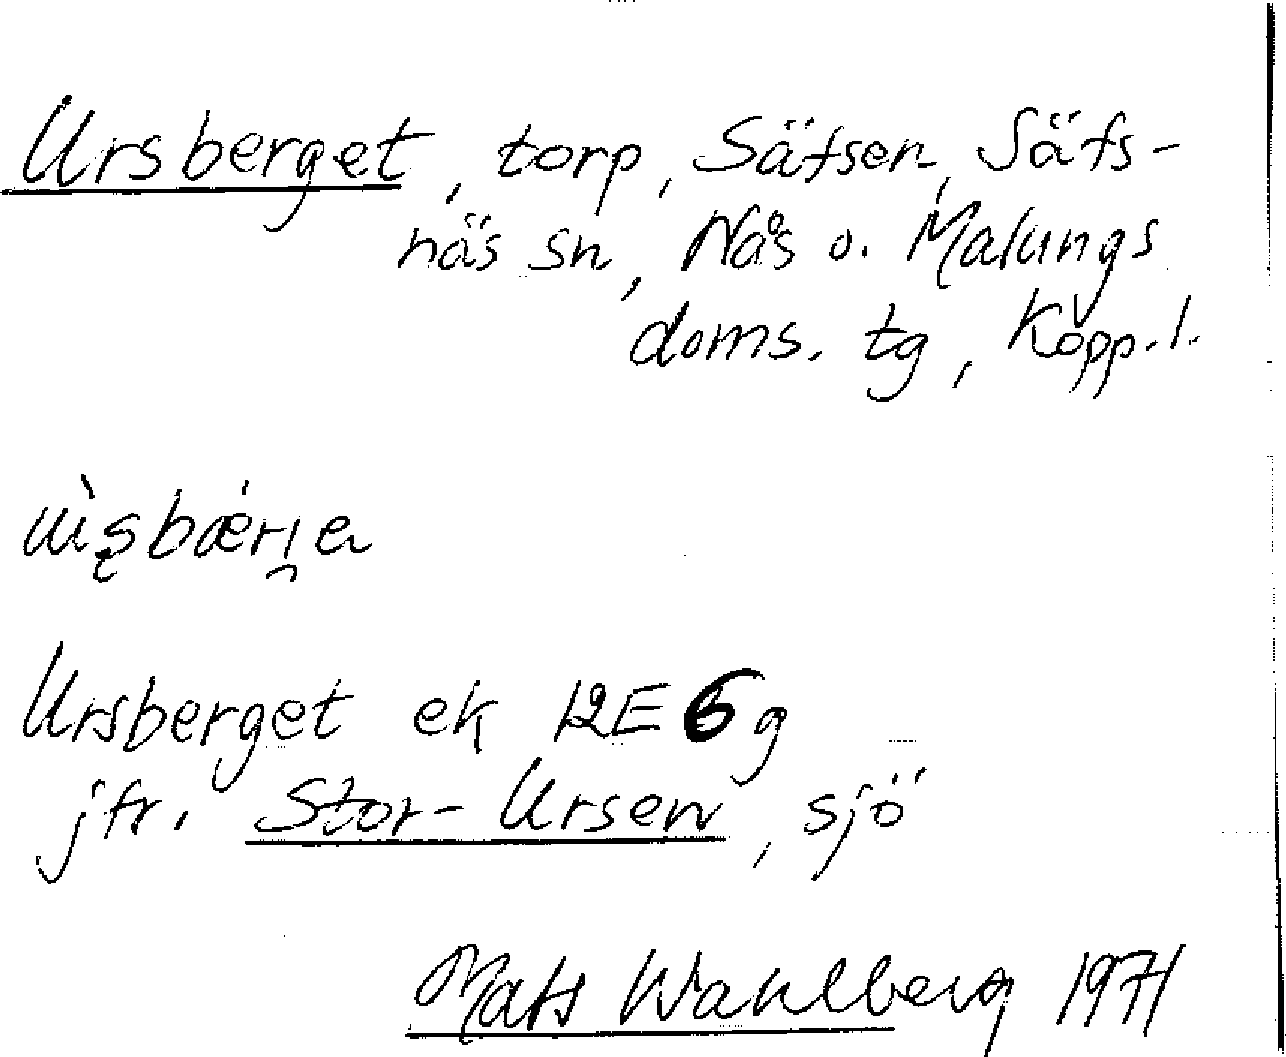 Ursberget, torp, Säfsen, Säfs-
näs sn, Nås o. Malungs
doms. tg, Kopp. l.
Ursberget ek 12E 6g
jfr. Stor-Ursen, sjö
Mats Wahlberg 1971